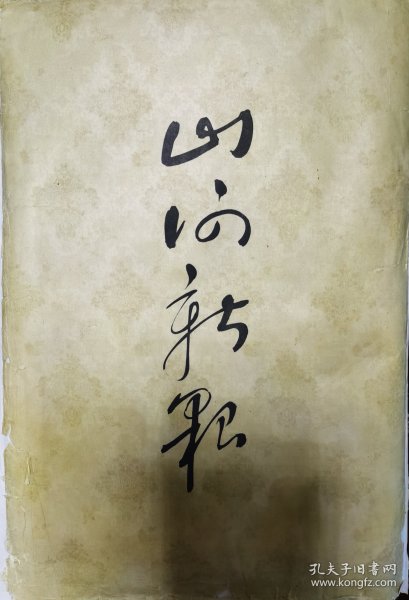 山河新貌
孔夫子旧书网
www.kongfz.com